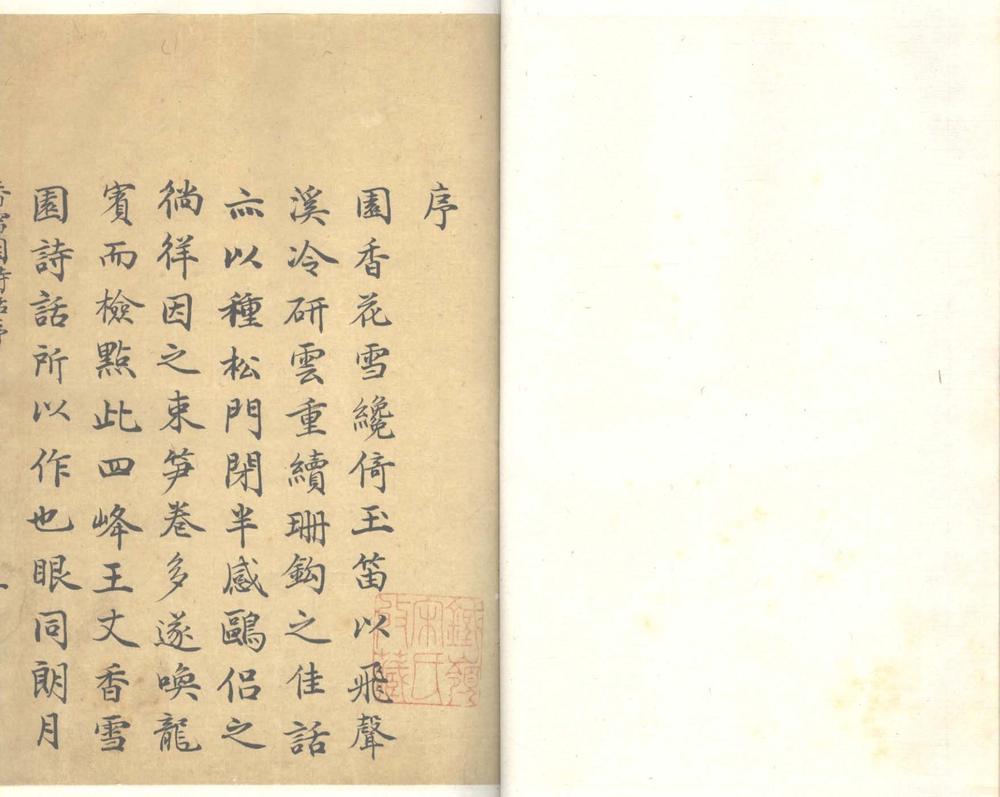 序
園香花雪纔倚玉笛以飛聲
溪冷研雲重續珊鈎之佳話
亦以種松門閉半感鷗侣之
徜徉因之束笋卷多遂喚龍
賓而檢點此四峰王丈香雪
園詩話所以作也眼同朗月
香雪園詩話序
鐵嶺
宋氏
收藏